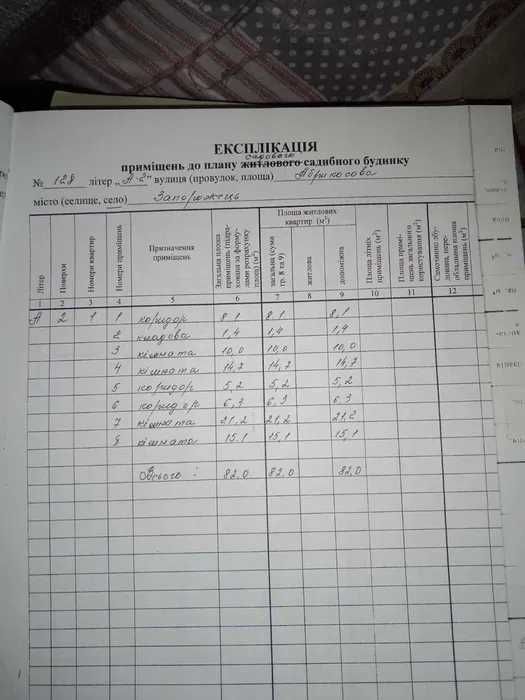 ЕКСПЛІКАЦІЯ
садового
приміщень до плану житлового садибного будинку
№ 128 літер „А-2" вулиця (провулок, площа) Абрикосова
місто (селище, село) Запоріжець
Літер
Поверхи
Номери квартир
Номери приміщень
Призначення приміщень
Загальна площа приміщень (підрахована за формулами розрахунку площ) (м²)
Площа житлових квартир (м²)
загальна (сума гр. 8 та 9)
житлова
допоміжна
Площа літніх приміщень (м²)
Площа приміщень загального користування (м²)
Самочинно збудована, переобладнана площа приміщень (м²)
1 2 3 4 5 6 7 8 9 10 11 12
А 2 1 1 коридор 8,1 8,1 8,1
2 кладова 1,4 1,4 1,4
3 кімната 10,0 10,0 10,0
4 кімната 14,7 14,7 14,7
5 коридор 5,2 5,2 5,2
6 коридор 6,3 6,3 6,3
7 кімната 21,2 21,2 21,2
8 кімната 15,1 15,1 15,1
Всього : 82,0 82,0 82,0